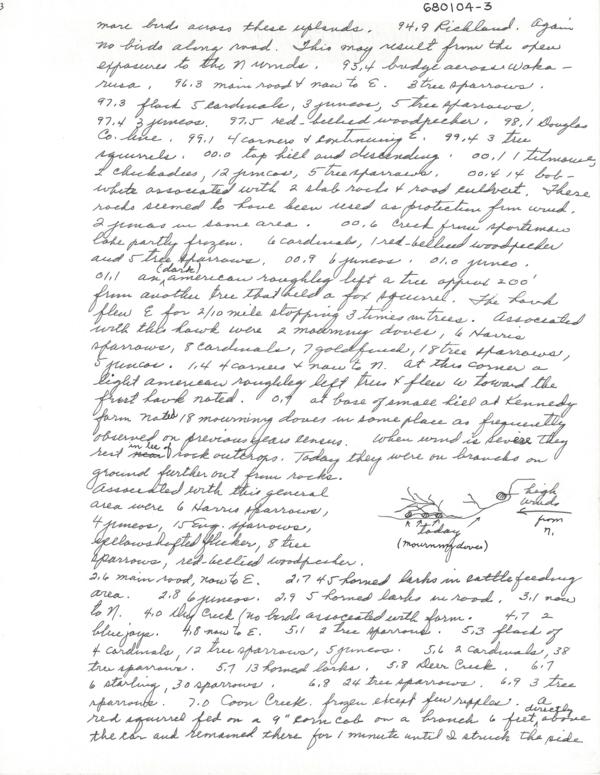 3
680104-3
more birds across these uplands. 94.9 Richland. Again
no birds along road. This may result from the open
exposures to the N winds. 95.4 bridge across Waka-
rusa. 96.3 main road & now to E. 3 tree sparrows.
97.3 flock 5 cardinals, 3 juncos, 5 tree sparrows.
97.4 3 juncos. 97.5 red-bellied woodpecker. 98.1 Douglas
Co. line. 99.1 4 corners & continuing E. 99.4 3 tree
squirrels. 00.0 top hill and descending. 00.1 1 titmouse,
2 chickadees, 12 juncos, 5 tree sparrows. 00.4 14 bob-
white associated with 2 slab rocks & road culvert. These
rocks seemed to have been used as protection from wind.
2 juncos in same area. 00.6 Creek from sportsman
lake partly frozen. 6 cardinals, 1 red-bellied woodpecker
and 5 tree sparrows. 00.9 6 juncos. 01.0 junco.
01.1 an (dark) american roughleg left a tree approx 200'
from another tree that held a fox squirrel. The hawk
flew E for 2/10 mile stopping 3 times in trees. Associated
with this hawk were 2 mourning doves, 6 Harris
sparrows, 8 cardinals, 7 goldfinch, 18 tree sparrows,
5 juncos. 1.4 4 corners & now to N. At this corner a
light american roughleg left trees & flew W toward the
first hawk noted. 0.9 at base of small hill at Kennedy
farm noted 18 mourning doves in same place as frequently
observed on previous years census. When wind is severe they
rest in lee of rock outcrops. Today they were on branches on
ground further out from rocks.
Associated with this general
area were 6 Harris sparrows,
4 juncos, 15 Eng. sparrows,
yellowshafted flicker, 8 tree
sparrows, red-bellied woodpecker.
high
winds
from
n.
today
(mourning doves)
2.6 main road, now to E. 2.7 45 horned larks in cattle feeding
area. 2.8 6 juncos. 2.9 5 horned larks in road. 3.1 now
to N. 4.0 Dry Creek (no birds associated with farm. 4.7 2
bluejays. 4.8 now to E. 5.1 2 tree sparrows. 5.3 flock of
4 cardinals, 12 tree sparrows, 5 juncos. 5.6 2 cardinals, 38
tree sparrows. 5.7 13 horned larks. 5.8 Deer Creek. 6.7
6 starling, 30 sparrows. 6.8 24 tree sparrows. 6.9 3 tree
sparrows. 7.0 Coon Creek. frozen except few ripples. A
red squirrel fed on a 9" corn cob on a branch 6 feet directly above
the car and remained there for 1 minute until I struck the side